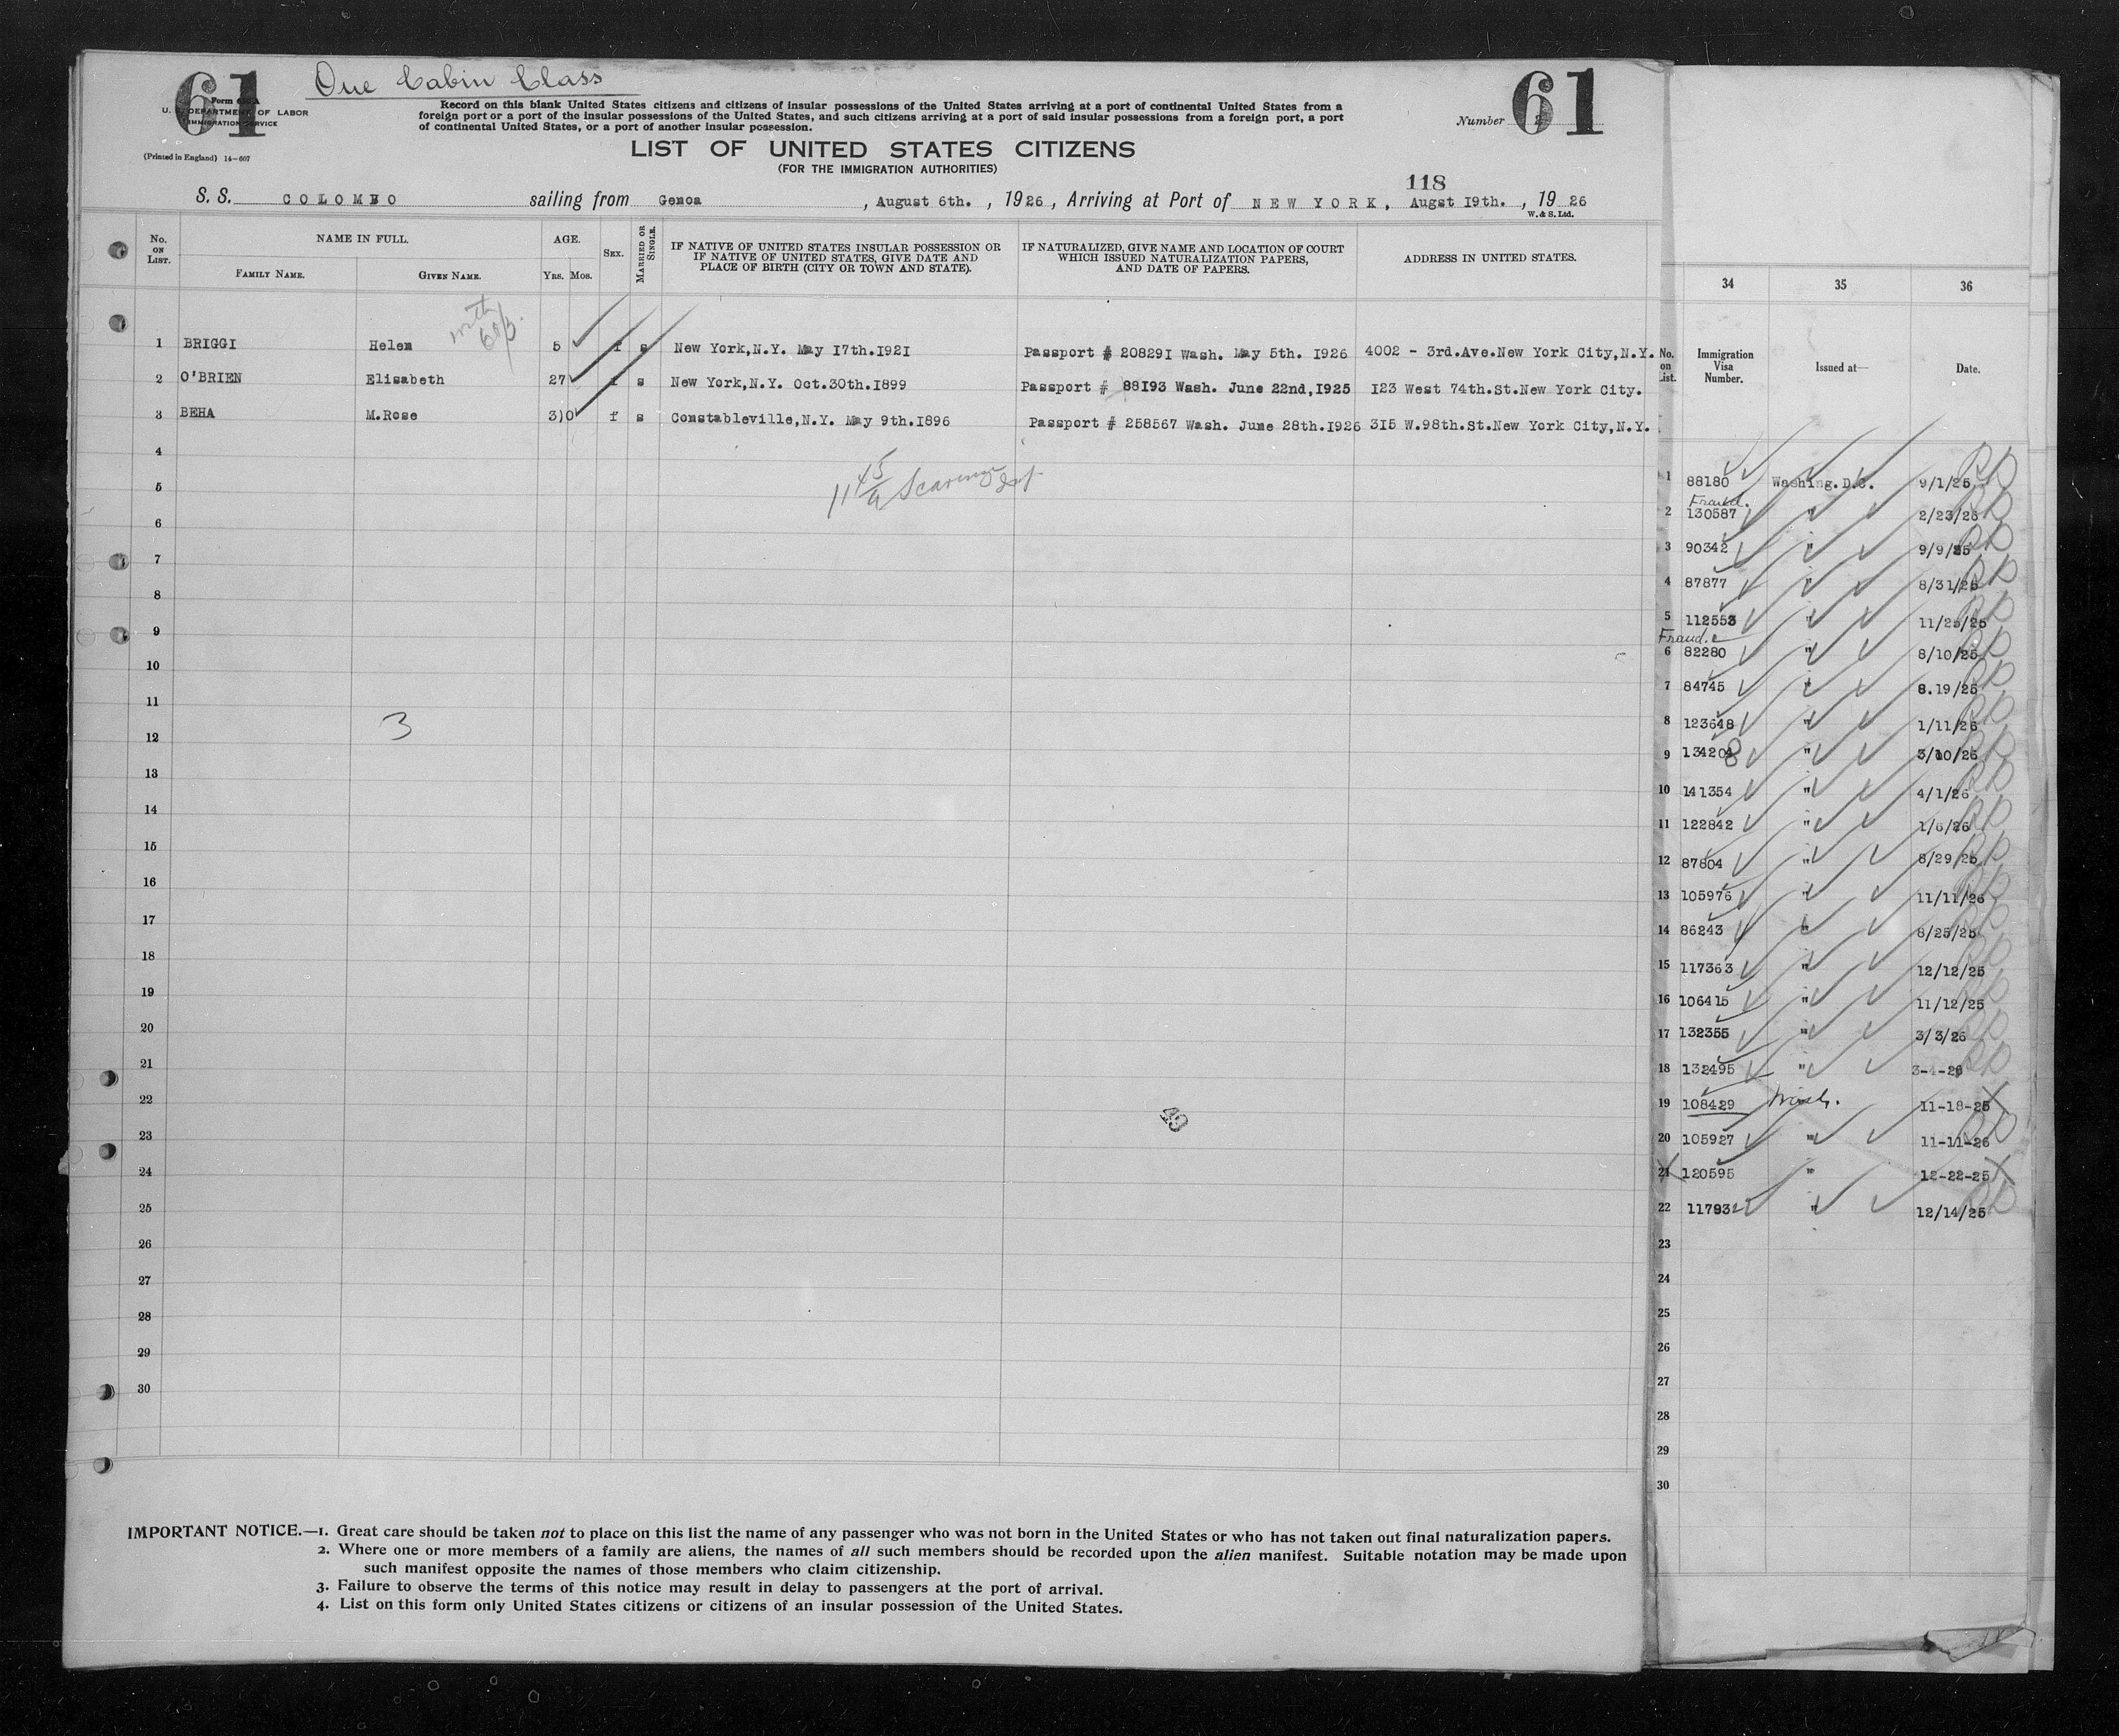 61 One Cabin Class 61
Form 630 A
U. S. DEPARTMENT OF LABOR
IMMIGRATION SERVICE
(Printed in England) 14-607
Record on this blank United States citizens and citizens of insular possessions of the United States arriving at a port of continental United States from a
foreign port or a port of the insular possessions of the United States, and such citizens arriving at a port of said insular possessions from a foreign port, a port
of continental United States, or a port of another insular possession.
Number 2
LIST OF UNITED STATES CITIZENS
(FOR THE IMMIGRATION AUTHORITIES)
118
S. S. COLOMBO sailing from Genoa, August 6th., 1926, Arriving at Port of NEW YORK, Augst I9th., 1926
W. & S. Ltd.
No. ON LIST. NAME IN FULL. FAMILY NAME. GIVEN NAME. AGE. YRS. MOS. SEX. MARRIED OR SINGLE. IF NATIVE OF UNITED STATES INSULAR POSSESSION OR IF NATIVE OF UNITED STATES, GIVE DATE AND PLACE OF BIRTH (CITY OR TOWN AND STATE). IF NATURALIZED, GIVE NAME AND LOCATION OF COURT WHICH ISSUED NATURALIZATION PAPERS, AND DATE OF PAPERS. ADDRESS IN UNITED STATES.
with
1 BRIGGI Helen 5 f s New York,N.Y. May I7th.I92I Passport # 20829I Wash. May 5th. I926 4002 - 3rd.Ave.New York City,N.Y.
2 O'BRIEN Elisabeth 27 f s New York,N.Y. Oct.30th.I899 Passport # 88I93 Wash. June 22nd,I925 I23 West 74th.St.New York City.
3 BEHA M.Rose 3)0 f s Constableville,N.Y. May 9th.I896 Passport # 258567 Wash. June 28th.I926 3I5 W.98th.St.New York City,N.Y.
4
5
6
7
8
9
10
11
3
12
13
14
15
16
17
18
19
20
21
22
49
23
24
25
26
27
28
29
30
IMPORTANT NOTICE.—1. Great care should be taken not to place on this list the name of any passenger who was not born in the United States or who has not taken out final naturalization papers.
2. Where one or more members of a family are aliens, the names of all such members should be recorded upon the alien manifest. Suitable notation may be made upon
such manifest opposite the names of those members who claim citizenship.
3. Failure to observe the terms of this notice may result in delay to passengers at the port of arrival.
4. List on this form only United States citizens or citizens of an insular possession of the United States.
34 35 36
No. on List. Immigration Visa Number. Issued at— Date.
1 88180 Washing.D.C. 9/1/25
Fraud.
2 130587 " 2/23/26
3 90342 " 9/9/25
4 87877 " 8/31/25
5 112553 " 11/25/25
Fraud.
6 82280 " 8/10/25
7 84745 " 8.19/25
8 123648 " 1/11/26
9 134208 " 3/10/26
10 141354 " 4/1/26
11 122842 " 1/6/26
12 87804 " 8/29/25
13 105976 " 11/11/26
14 86243 " 8/25/25
15 117363 " 12/12/25
16 106415 " 11/12/25
17 132355 " 3/3/26
18 132495 " 3-4-26
19 108429 Wash. 11-18-25
20 105927 " 11-11-26
21 120595 " 12-22-25
22 117932 " 12/14/25
23
24
25
26
27
28
29
30